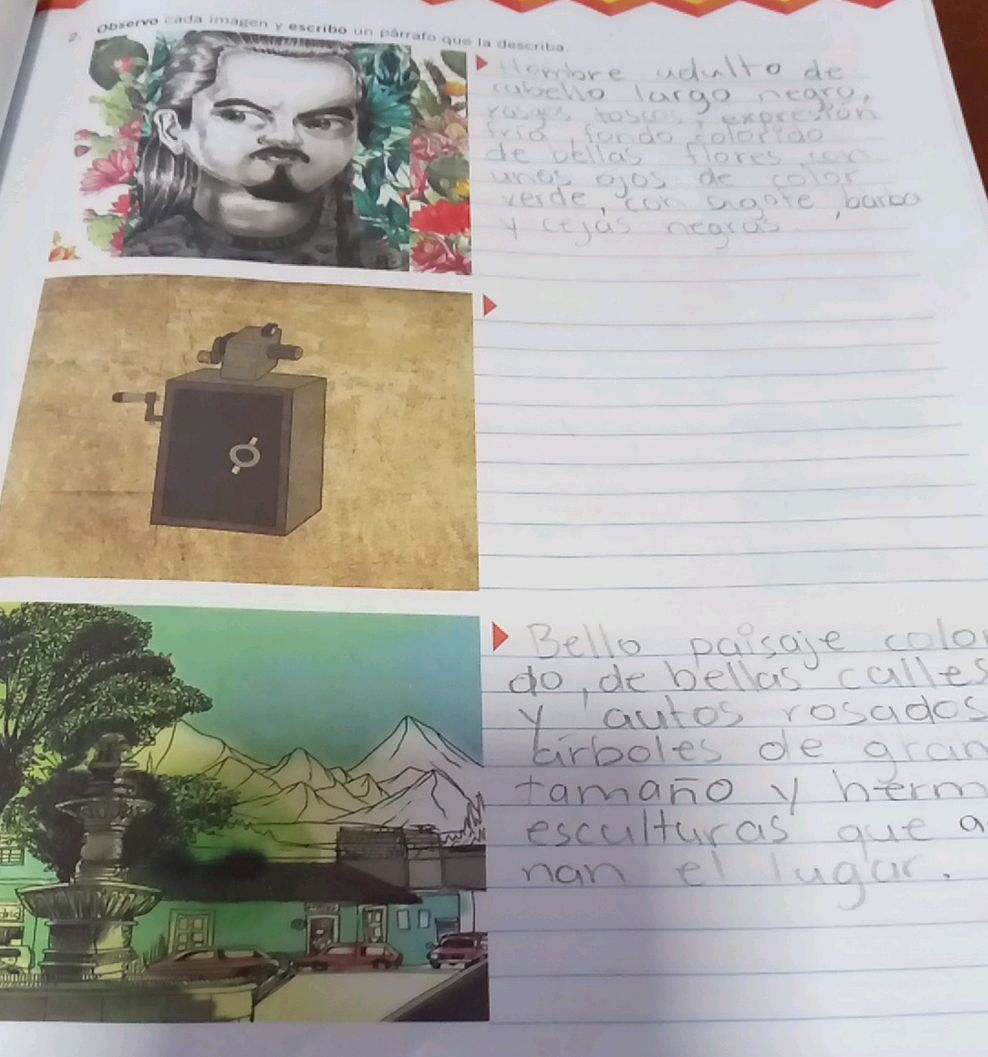 2. Observo cada imagen y escribo un párrafo que la describa.
Hombre adulto de
cabello largo negro,
rasgos toscos, expresión
fría, fondo colorido
de bellas flores, con
unos ojos de color
verde, con bigote, barba
y cejas negras.
Bello paisaje colo
do, de bellas calles
y autos rosados
árboles de gran
tamaño y herm
esculturas que a
nan el lugar.